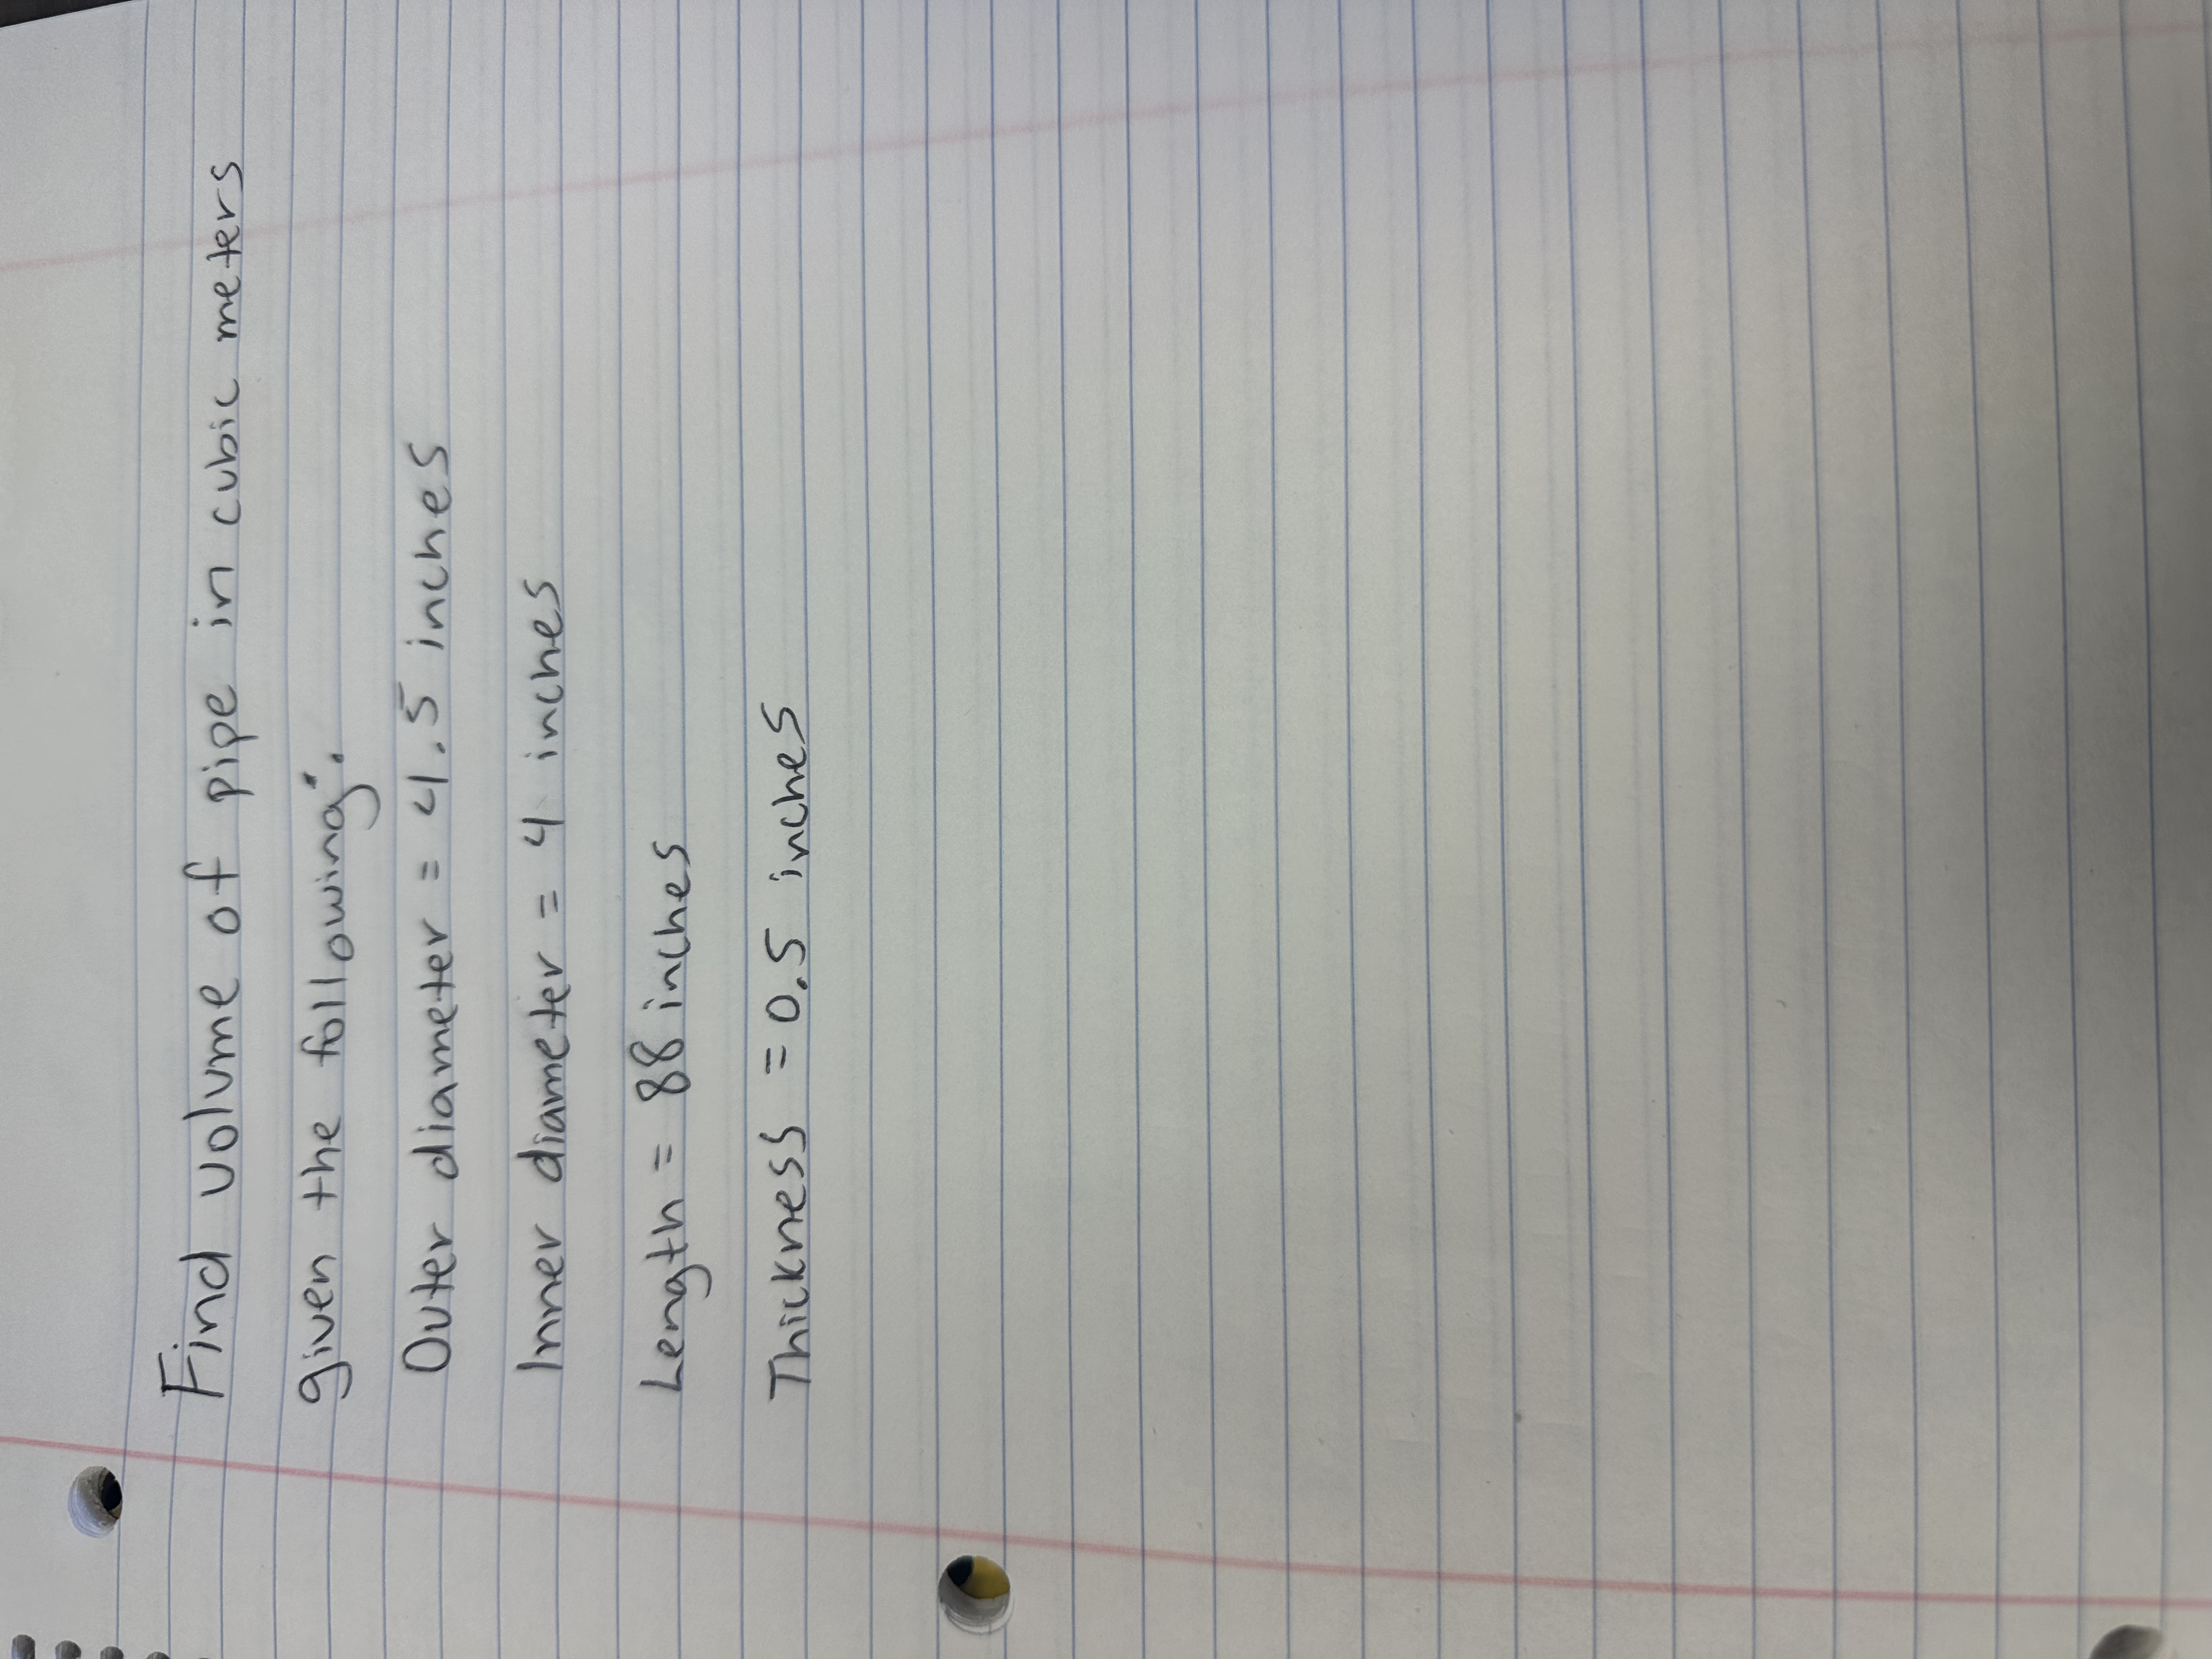 Find volume of pipe in cubic meters
given the following:
Outer diameter = 4.5 inches
Inner diameter = 4 inches
Length = 88 inches
Thickness = 0.5 inches